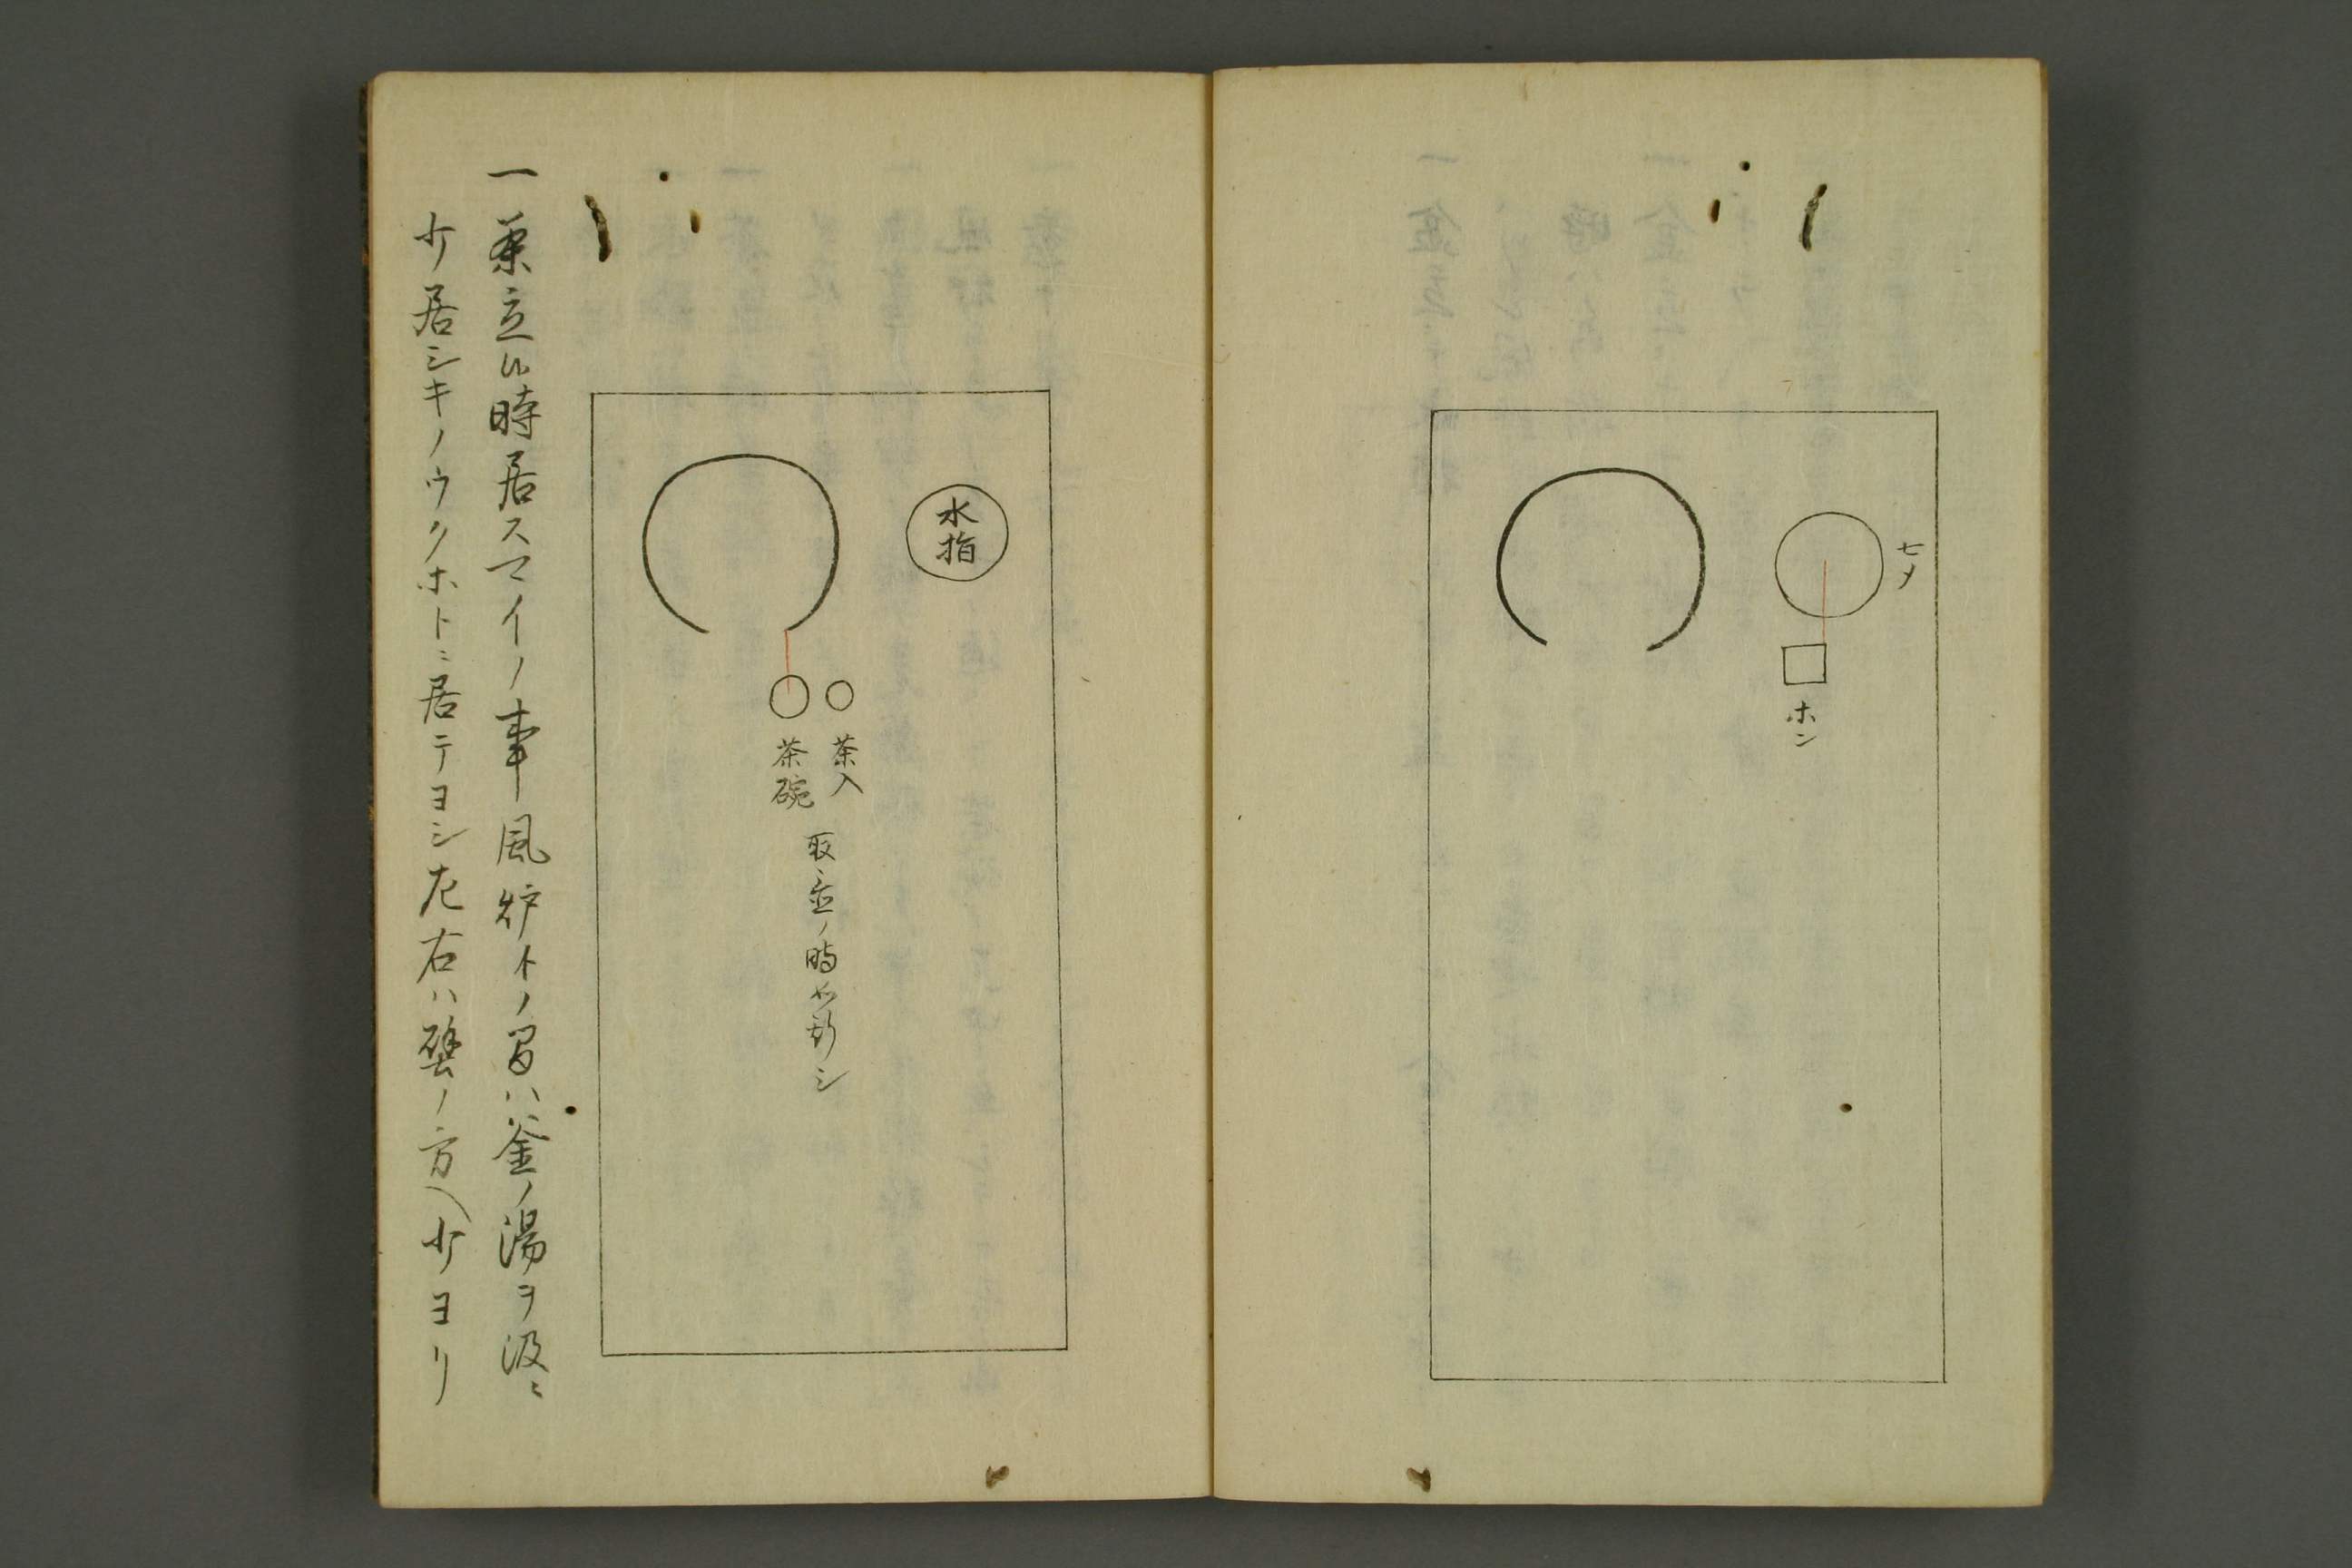 七メ
ホン
水指
茶入
茶碗
取立ノ時如形シ
一茶立ル時居スマイノ事風炉トノ間ハ釜ノ湯ヲ汲ニ
少居シキノウクホトニ居テヨシ左右ハ壁ノ方ヘ少ヨリ